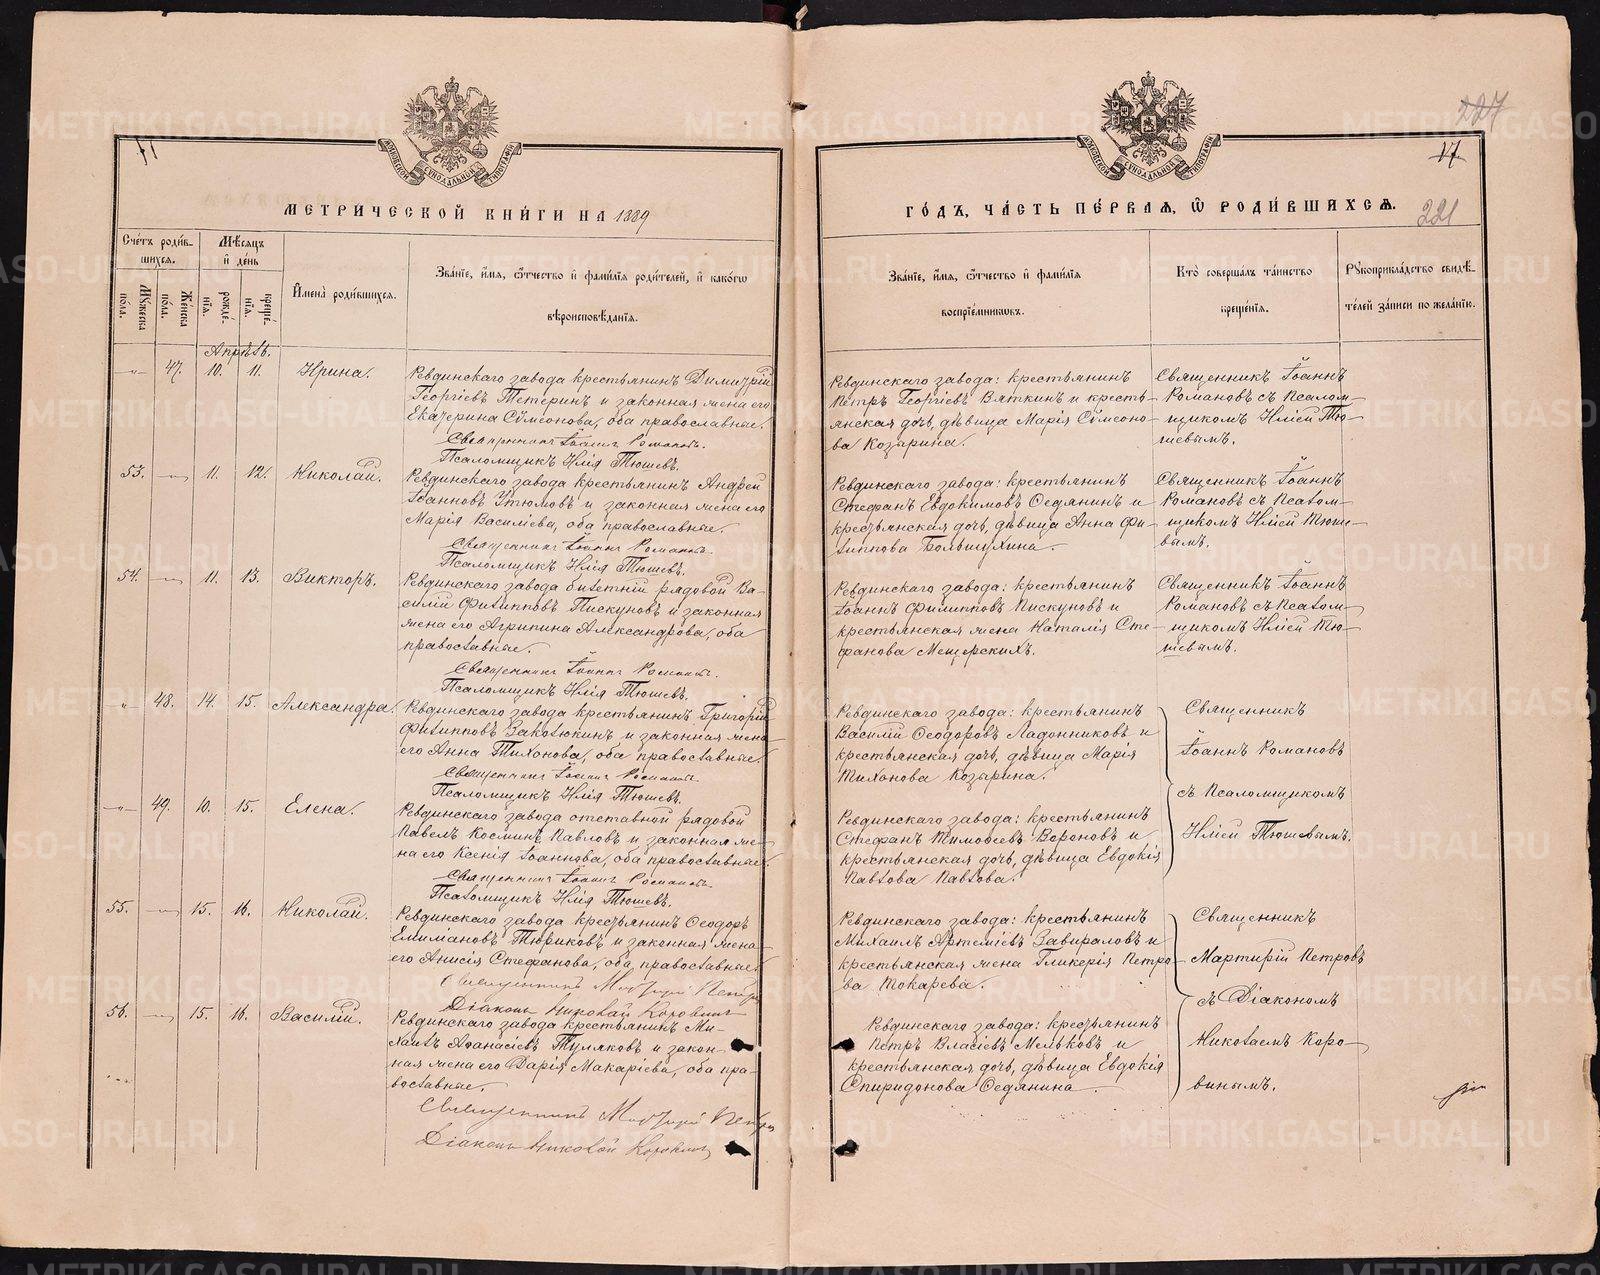 МЕТРИЧЕСКОЙ КНИГИ НА 1889
Счетъ родив-
шихся.
Мужеска пола.
Женска пола.
Мѣсяцъ и день
рожденія.
крещенія.
Имена родившихся.
Званіе, имя, отчество и фамилія родителей, и какогѡ
вѣроисповѣданія.
Апрѣль.
47. 10. 11. Ирина.
Ревдинскаго завода крестьянинъ Димитрій
Георгіевъ Тетеринъ и законная жена его
Екатерина Сѵмеонова, оба православные.
Священникъ Іоаннъ Романовъ.
Псаломщикъ Илія Тюшевъ.
53. 11. 12. Николай.
Ревдинскаго завода крестьянинъ Андрей
Іоанновъ Утюмовъ и законная жена его
Марія Василіева, оба православные.
Священникъ Іоаннъ Романовъ.
Псаломщикъ Илія Тюшевъ.
54. 11. 13. Викторъ.
Ревдинскаго завода билетній рядовой Ва-
силій Филипповъ Пискуновъ и законная
жена его Агрипина Александрова, оба
православные.
Священникъ Іоаннъ Романовъ.
Псаломщикъ Илія Тюшевъ.
48. 14. 15. Александра.
Ревдинскаго завода крестьянинъ Григорій
Филипповъ Заколюкинъ и законная жена
его Анна Тихонова, оба православные.
Священникъ Іоаннъ Романовъ.
Псаломщикъ Илія Тюшевъ.
49. 10. 15. Елена.
Ревдинскаго завода отставной рядовой
Павелъ Косминъ Павловъ и законная же-
на его Ксенія Іоаннова, оба православные.
Священникъ Іоаннъ Романовъ.
Псаломщикъ Илія Тюшевъ.
55. 15. 16. Николай.
Ревдинскаго завода крестьянинъ Ѳеодоръ
Емиліановъ Тюриковъ и законная жена
его Анисія Стефанова, оба православные.
Священникъ Мартирій Петровъ
Діаконъ Николай Коровинъ
56. 15. 16. Василій.
Ревдинскаго завода крестьянинъ Ми-
хаилъ Аѳанасіевъ Тумаковъ и закон-
ная жена его Дарія Макаріева, оба пра-
вославные.
Священникъ Мартирій Петровъ
Діаконъ Николай Коровинъ
227
17
221
ГОДЪ, ЧАСТЬ ПЕРВАЯ, Ѡ РОДИВШИХСЯ.
Званіе, имя, отчество и фамилія
воспріемниковъ.
Кто совершалъ таинство
крещенія.
Рукоприкладство свидѣ-
телей записи по желанію.
Ревдинскаго завода: крестьянинъ
Петръ Георгіевъ Вяткинъ и кресть-
янская дочь, дѣвица Марія Сѵмеоно-
ва Козырина.
Священникъ Іоаннъ
Романовъ съ Псалом-
щикомъ Иліей Тю-
шевымъ.
Ревдинскаго завода: крестьянинъ
Стефанъ Евдокимовъ Седянинъ и
крестьянская дочь, дѣвица Анна Фи-
липпова Большухина.
Священникъ Іоаннъ
Романовъ съ Псалом-
щикомъ Иліей Тюше-
вымъ.
Ревдинскаго завода: крестьянинъ
Іоаннъ Филипповъ Пискуновъ и
крестьянская жена Наталія Сте-
фанова Мещерскихъ.
Священникъ Іоаннъ
Романовъ съ Псалом-
щикомъ Иліей Тю-
шевымъ.
Ревдинскаго завода: крестьянинъ
Василій Ѳеодоровъ Ладонниковъ и
крестьянская дочь, дѣвица Марія
Тихонова Козырина.
Ревдинскаго завода: крестьянинъ
Стефанъ Тимоѳеевъ Вороновъ и
крестьянская дочь, дѣвица Евдокія
Павлова Павлова.
Священникъ
Іоаннъ Романовъ
съ Псаломщикомъ
Иліей Тюшевымъ.
Ревдинскаго завода: крестьянинъ
Михаилъ Артеміевъ Завираловъ и
крестьянская жена Гликерія Петро-
ва Токарева.
Ревдинскаго завода: крестьянинъ
Петръ Власіевъ Мельковъ и
крестьянская дочь, дѣвица Евдокія
Спиридонова Седянина.
Священникъ
Мартирій Петровъ
съ Діакономъ
Николаемъ Коро-
винымъ.
METRIKI.GASO-URAL.RU